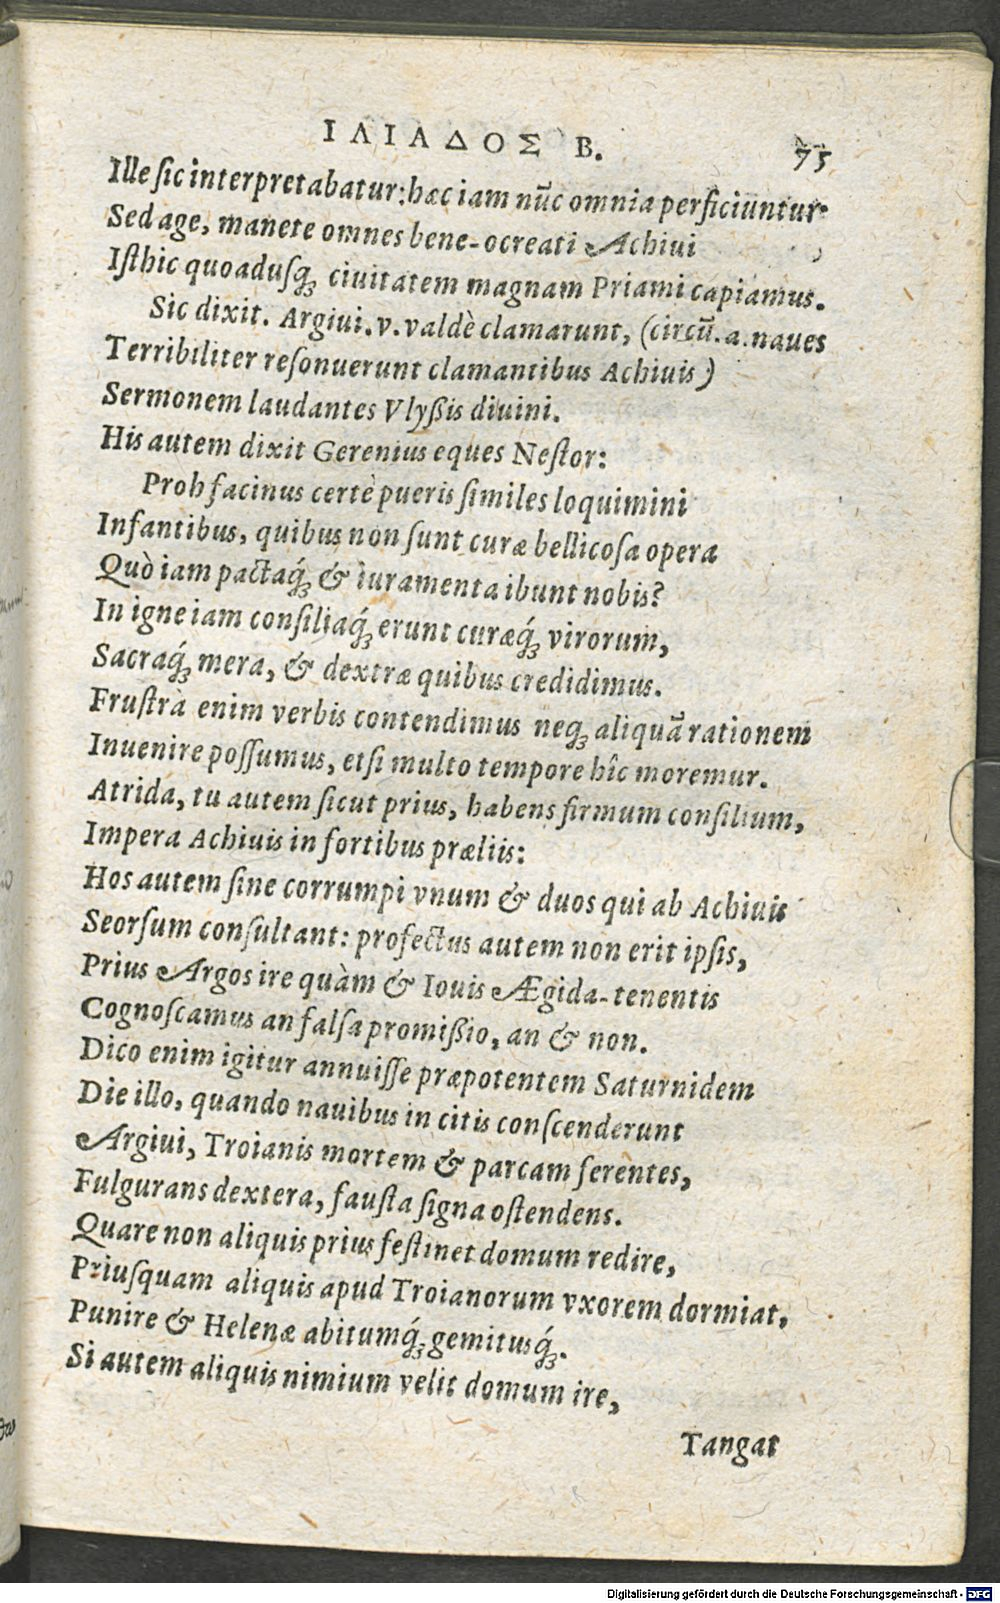 ΙΛΙΑΔΟΣ Β. 75
Ille ſic interpretabatur: hæc iam nūc omnia perficiuntur.
Sed age, manete omnes bene-ocreati Achiui
Iſthic quoaduſq; ciuitatem magnam Priami capiamus.
Sic dixit. Argiui. v. valdè clamarunt, (circū. a. naues
Terribiliter reſonuerunt clamantibus Achiuis)
Sermonem laudantes Vlyßis diuini.
His autem dixit Gerenius eques Neſtor:
Proh facinus certè pueris ſimiles loquimini
Infantibus, quibus non ſunt curæ bellicoſa opera
Quò iam pactaq́; & iuramenta ibunt nobis?
In igne iam conſiliaq́; erunt curæq́; virorum,
Sacraq́; mera, & dextræ quibus credidimus.
Fruſtrà enim verbis contendimus neq; aliquā rationem
Inuenire poſſumus, etſi multo tempore hîc moremur.
Atrida, tu autem ſicut prius, habens firmum conſilium,
Impera Achiuis in fortibus præliis:
Hos autem ſine corrumpi vnum & duos qui ab Achiuis
Seorſum conſultant: profectus autem non erit ipſis,
Prius Argos ire quàm & Iouis Ægida-tenentis
Cognoſcamus an falſa promißio, an & non.
Dico enim igitur annuiſſe præpotentem Saturnidem
Die illo, quando nauibus in citis conſcenderunt
Argiui, Troianis mortem & parcam ferentes,
Fulgurans dextera, fauſta ſigna oſtendens.
Quare non aliquis prius feſtinet domum redire,
Priuſquam aliquis apud Troianorum vxorem dormiat,
Punire & Helenæ abitumq́; gemitusq́;.
Si autem aliquis nimium velit domum ire,
Tangat
Digitalisierung gefördert durch die Deutsche Forschungsgemeinschaft - DFG